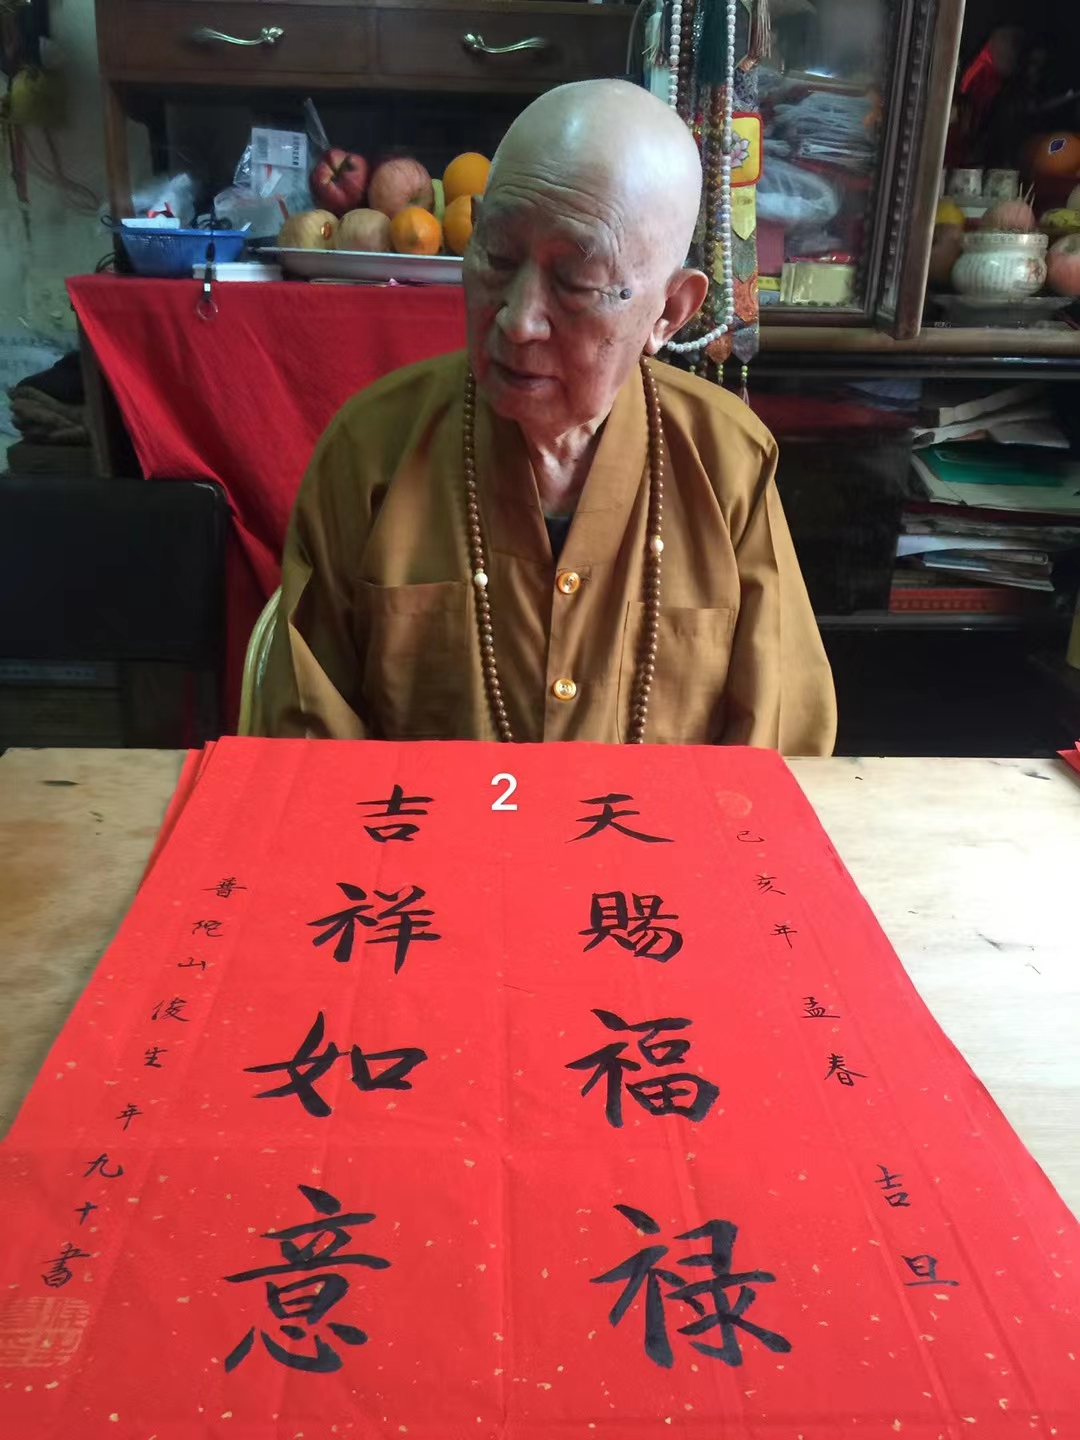 2
己亥年孟春吉旦
天賜福禄
吉祥如意
普陀山俊生年九十書